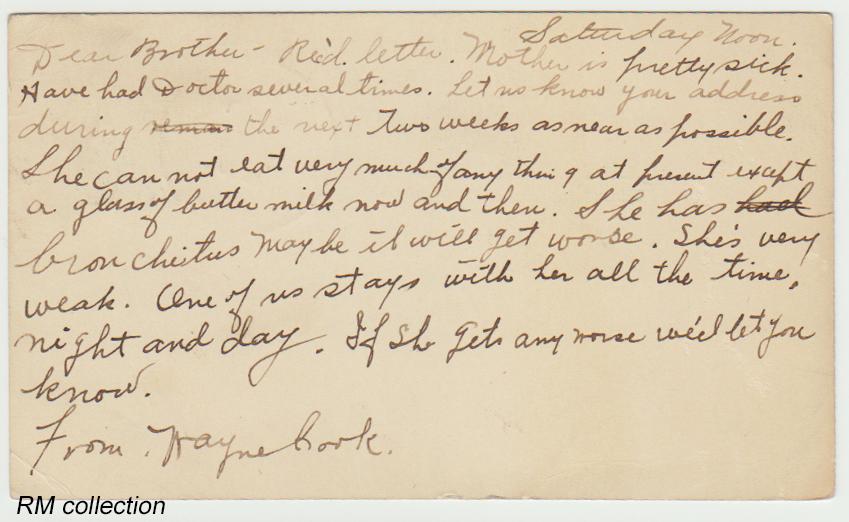 Saturday Noon.
Dear Brother - Rec'd. letter. Mother is pretty sick.
Have had Doctor several times. Let us know your address
during the next two weeks as near as possible.
She can not eat very much of any thing at present except
a glass of butter milk now and then. She has had
bronchitus may be it will get worse. She's very
weak. One of us stays with her all the time,
night and day. If she gets any worse we'd let you
know.
From. Wayne Cook.
RM collection